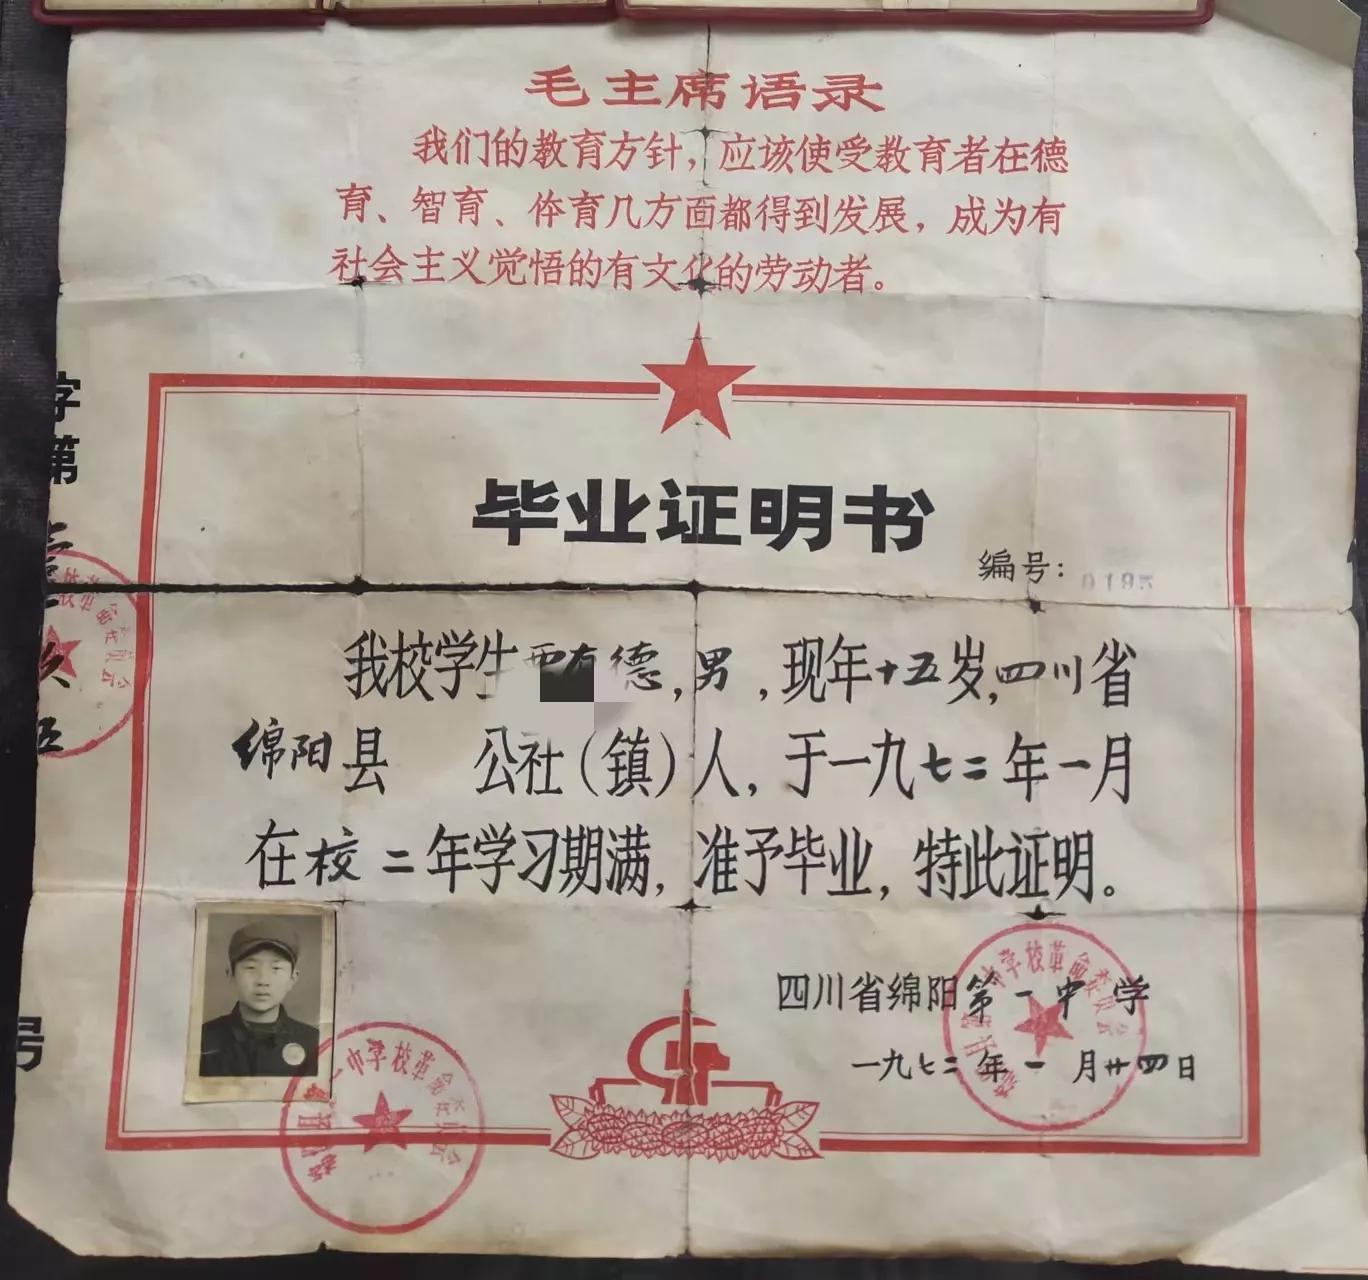 毛主席语录
我们的教育方针，应该使受教育者在德
育、智育、体育几方面都得到发展，成为有
社会主义觉悟的有文化的劳动者。
字第
号
毕业证明书
编号：0195
我校学生德，男，现年十五岁，四川省
绵阳县 公社（镇）人，于一九七二年一月
在校二年学习期满，准予毕业，特此证明。
四川省绵阳第一中学
一九七二年一月廿四日
中学校革命委员会
一中学校革命委员会